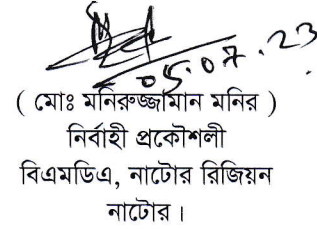 05.07.23
( মোঃ মনিরুজ্জামান মনির )
নির্বাহী প্রকৌশলী
বিএমডিএ, নাটোর রিজিয়ন
নাটোর।